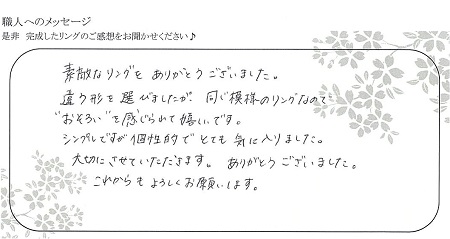 職人へのメッセージ
是非 完成したリングのご感想をお聞かせください♪
素敵なリングを ありがとうございました。
違う形を選びましたが、同じ模様のリングなので
"おそろい"を感じられて嬉しいです。
シンプルですが個性的でとても気に入りました。
大切にさせていただきます。 ありがとうございました。
これからも よろしくお願いします。